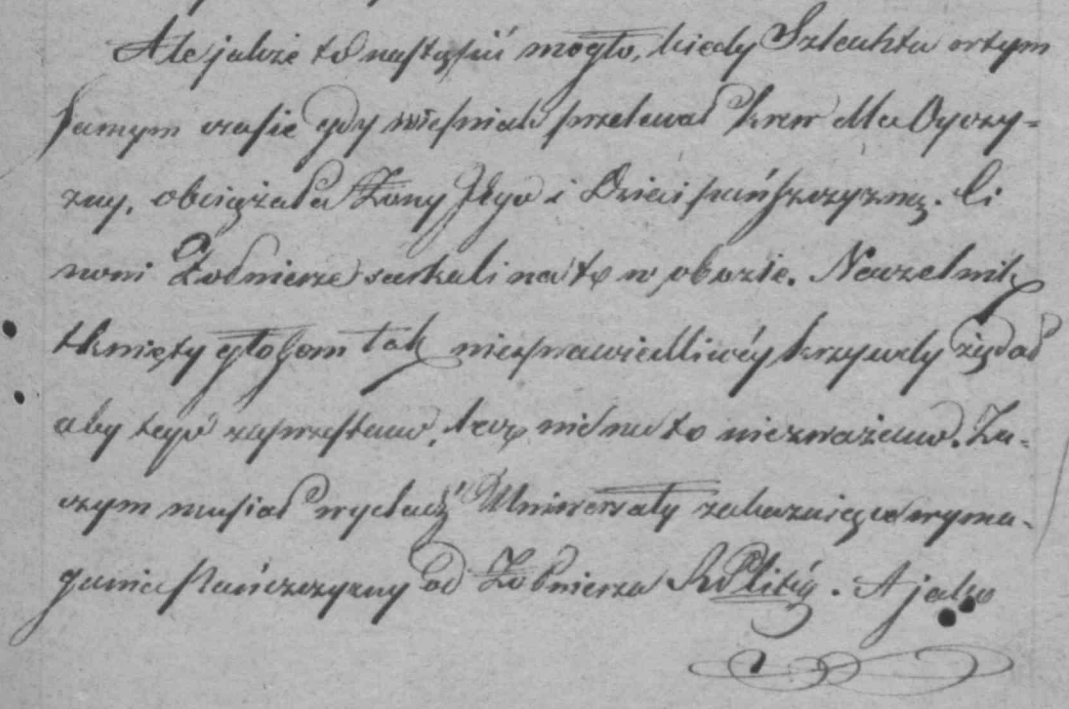 Ale jakże to nastąpić mogło, kiedy Szlachta w tym
samym czasie gdy wieśniak przelewał krew dla Oyczy-
zny, obciążała Żony Jego i Dzieci pańszczyzną. Ci
nowi Żołnierze sarkali na to w obozie. Naczelnik
tknięty głosem tak niesprawiedliwéy krzywdy żądał
aby tego zaprzestano, lecz nic na to niezważano. Za-
czym musiał wydadź Uniwersały zakazuiące wyma-
gania Pańszczyzny od Żołnierza RzPlitéy. A jako